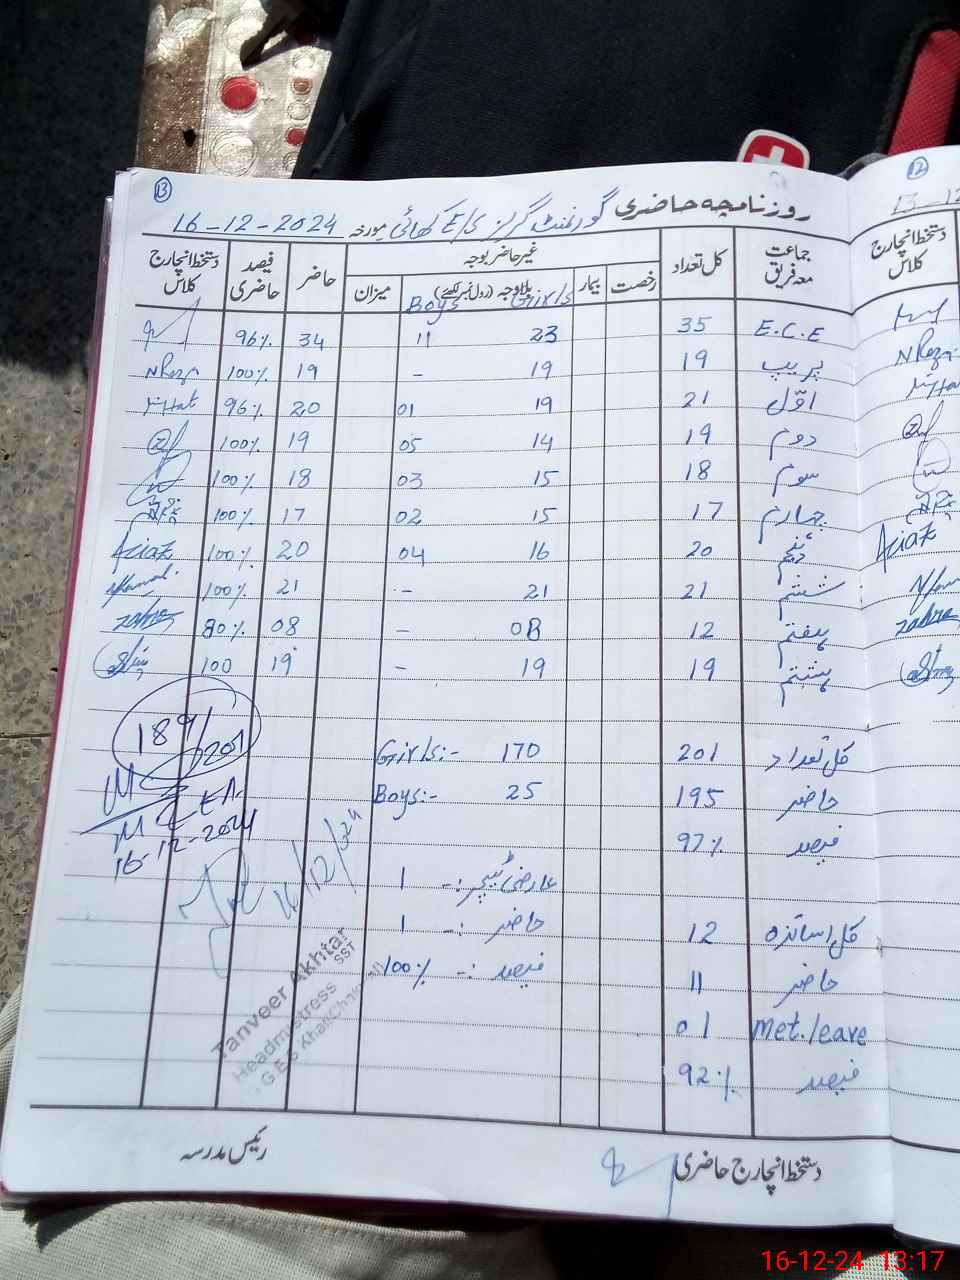 13
روزنامچہ حاضری گورنمنٹ گرلز E/S کھائی مورخہ 16-12-2024
جماعت معہ فریق کل تعداد غیر حاضر بوجہ حاضر فیصد حاضری دستخط انچارج کلاس
رخصت بیمار بلاوجہ (رول نمبر لکھئے) میزان
Boys Girls
E.C.E 35 23 11 34 96%
پریپ 19 19 - 19 100% NReza
اوّل 21 19 01 20 96%
دوم 19 14 05 19 100%
سوم 18 15 03 18 100%
چہارم 17 15 02 17 100%
پنجم 20 16 04 20 100% Aciaz
ششم 21 21 - 21 100%
ہفتم 12 08 - 08 80% zahra
ہشتم 19 19 - 19 100
کل تعداد 201 Girls:- 170
حاضر 195 Boys:- 25
فیصد 97%
189/201
MEA
16-12-2024
عارضی ٹیچر :- 1
کل اساتذہ 12 حاضر :- 1
حاضر 11 فیصد :- 100%
Met.leave 01
فیصد 92%
16/12/024
Tanveer Akhtar
Headmistress SST
G.E.S Khai Chak
دستخط انچارج حاضری رئیس مدرسہ
12
13-12
دستخط انچارج کلاس
NReza
Aciaz
zahra
16-12-24 13:17